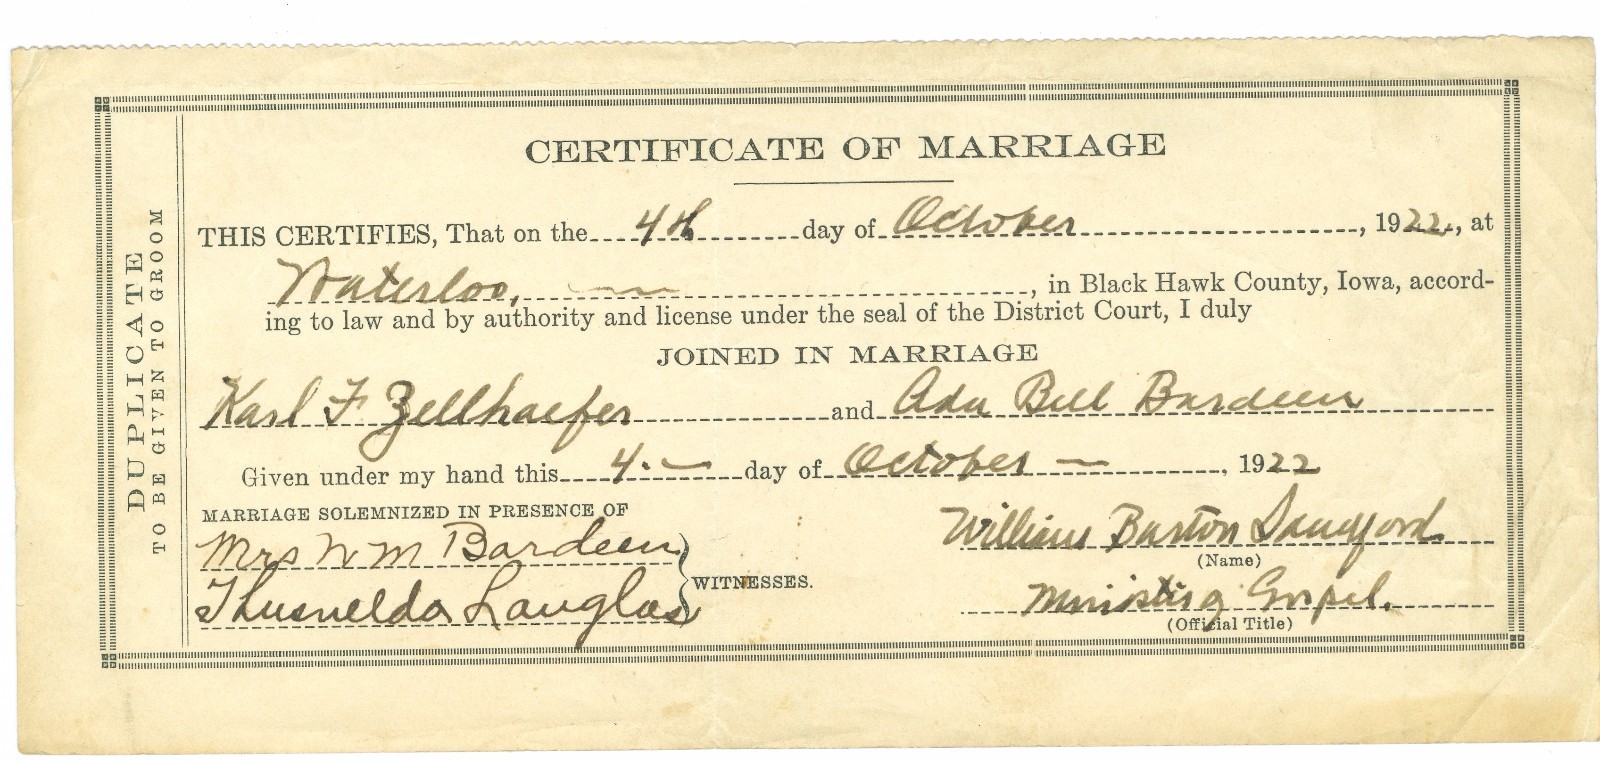 CERTIFICATE OF MARRIAGE
DUPLICATE
TO BE GIVEN TO GROOM
THIS CERTIFIES, That on the 4th day of October, 1922, at
Waterloo, in Black Hawk County, Iowa, accord-
ing to law and by authority and license under the seal of the District Court, I duly
JOINED IN MARRIAGE
Karl F Zellhaefer and Ada Bell Bardeen
Given under my hand this 4. day of October, 1922
MARRIAGE SOLEMNIZED IN PRESENCE OF
Mrs W M Bardeen
Thusnelda Langlas
WITNESSES.
William Barton Sandford
(Name)
Minister of Gospel.
(Official Title)